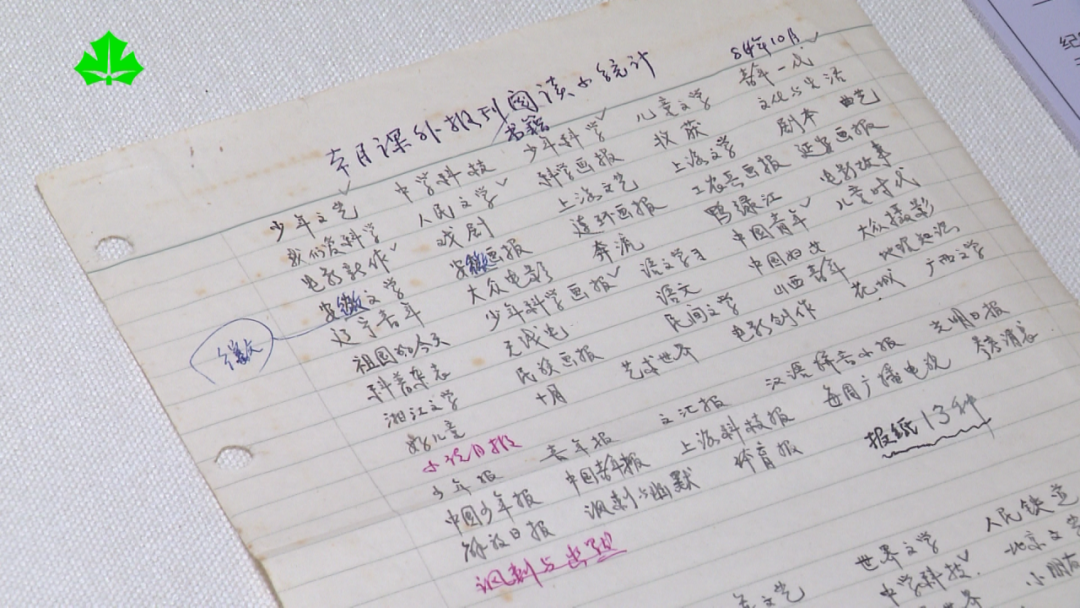 本月课外报刊阅读小统计
书籍
84年10月
少年文艺 中学科技 少年科学 儿童文学 青年一代
我们爱科学 人民文学 科学画报 收获 文化与生活
电影新作 戏剧 上海文艺 上海文学 剧本 曲艺
安徽文学 安徽画报 连环画报 工农兵画报 延边画报
辽宁青年 大众电影 奔流 鸭绿江 电影故事
祖国的今天 少年科学画报 语文学习 中国青年 儿童时代
科普杂志 无线电 语文 中国妇女 大众摄影
湘江文学 民族画报 民间文学 山西青年 地理知识
好儿童 十月 艺术世界 电影创作 花城 广西文学
小说月报
少年报 青年报 文汇报 汉语拼音小报 光明日报
中国少年报 中国青年报 上海科技报 每周广播电视 参考消息
解放日报 讽刺与幽默 体育报
报纸13种
讽刺与
徽
世界文学 人民铁道
文艺 中学科技 北京文学
小朋友
纪